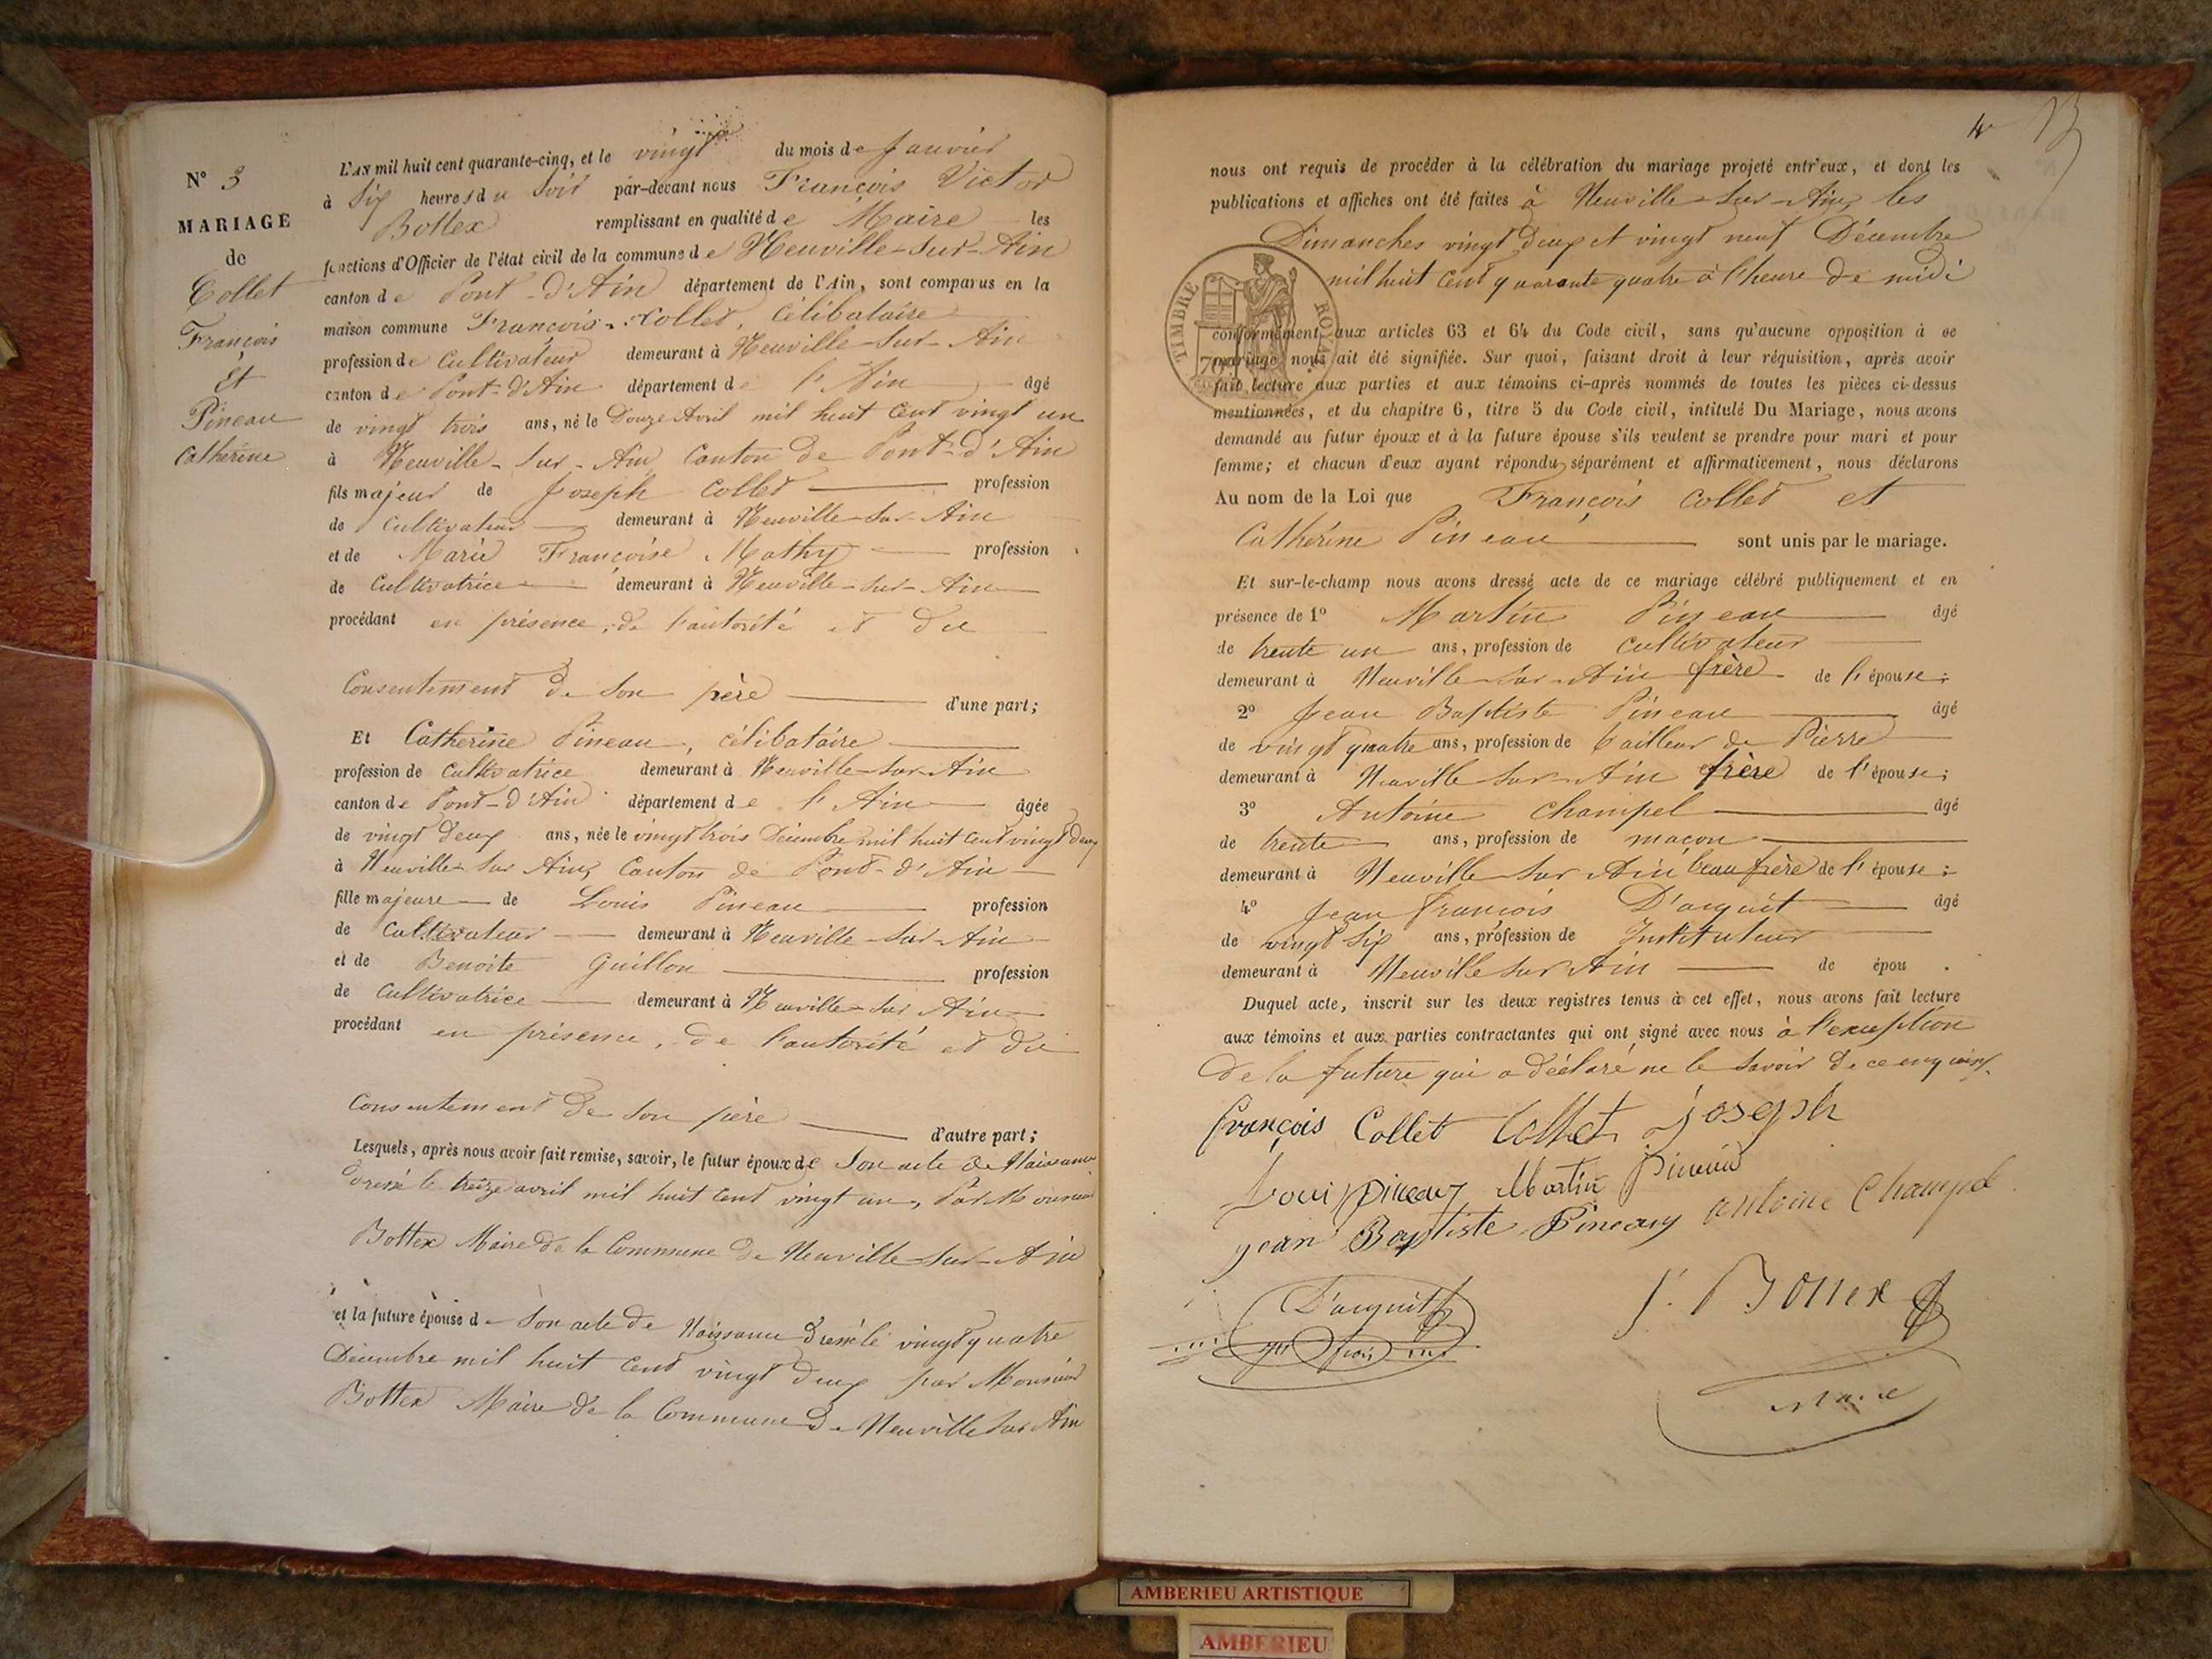 N° 3
MARIAGE
de
Collet
François
Et
Pineau
Catherine
L'an mil huit cent quarante-cinq, et le vingt du mois de Janvier
à Six heures du Soir par-devant nous François Victor
Bottex remplissant en qualité de Maire les
fonctions d'Officier de l'état civil de la commune de Neuville-sur-Ain
canton de Pont-d'Ain département de l'Ain, sont comparus en la
maison commune François Collet, célibataire
profession de Cultivateur demeurant à Neuville-sur-Ain
canton de Pont-d'Ain département de l'Ain âgé
de vingt trois ans, né le Douze Avril mil huit cent vingt un
à Neuville-sur-Ain Canton de Pont-d'Ain
fils majeur de Joseph Collet profession
de Cultivateur demeurant à Neuville-sur-Ain
et de Marie Françoise Mathy profession
de Cultivatrice demeurant à Neuville-sur-Ain
procédant en présence, de l'autorité et du
Consentement de Son père d'une part;
Et Catherine Pineau, célibataire
profession de cultivatrice demeurant à Neuville-sur-Ain
canton de Pont-d'Ain département de l'Ain âgée
de vingt deux ans, née le vingt trois Décembre mil huit cent vingt deux
à Neuville-sur Ain, Canton de Pont-d'Ain
fille majeure de Louis Pineau profession
de Cultivateur demeurant à Neuville-sur-Ain
et de Benoite Guillon profession
de Cultivatrice demeurant à Neuville-sur Ain
procédant en présence, de l'autorité et du
Consentement de Son père d'autre part;
Lesquels, après nous avoir fait remise, savoir, le futur époux de Son acte de Naissance
Dressé le treize avril mil huit Cent vingt un, Par Monsieur
Bottex Maire de la Commune de Neuville-sur-Ain
et la future épouse de Son acte de Naissance Dressé le vingt quatre
Décembre mil huit Cent vingt deux par Monsieur
Bottex Maire de la Commune de Neuville sur Ain
4
nous ont requis de procéder à la célébration du mariage projeté entr'eux, et dont les
publications et affiches ont été faites à Neuville-sur-Ain, les
Dimanches vingt deux et vingt neuf Décembre
mil huit Cent quarante quatre à l'heure de midi
TIMBRE ROYAL
70
conformément aux articles 63 et 64 du Code civil, sans qu'aucune opposition à ce
mariage nous ait été signifiée. Sur quoi, faisant droit à leur réquisition, après avoir
fait lecture aux parties et aux témoins ci-après nommés de toutes les pièces ci-dessus
mentionnées, et du chapitre 6, titre 5 du Code civil, intitulé Du Mariage, nous avons
demandé au futur époux et à la future épouse s'ils veulent se prendre pour mari et pour
femme; et chacun d'eux ayant répondu séparément et affirmativement, nous déclarons
Au nom de la Loi que François Collet et
Catherine Pineau sont unis par le mariage.
Et sur-le-champ nous avons dressé acte de ce mariage célébré publiquement et en
présence de 1° Martin Pineau âgé
de trente un ans, profession de cultivateur
demeurant à Neuville-sur-Ain frère de l'épouse;
2° Jean Baptiste Pineau âgé
de vingt quatre ans, profession de tailleur de Pierre
demeurant à Neuville sur Ain frère de l'épouse;
3° Antoine Champel âgé
de trente ans, profession de maçon
demeurant à Neuville sur Ain beau frère de l'épouse;
4° Jean François D'arguit âgé
de vingt Six ans, profession de Instituteur
demeurant à Neuville sur Ain de épou .
Duquel acte, inscrit sur les deux registres tenus à cet effet, nous avons fait lecture
aux témoins et aux parties contractantes qui ont signé avec nous à l'exception
de la future qui a déclaré ne le savoir de ce enquise.
françois Collet Collet joseph
Loui pineau Martin Pineau
jean Baptiste Pineau antoine Champel
D'arguit
f. Bottex
Maire
AMBERIEU ARTISTIQUE
AMBERIEU